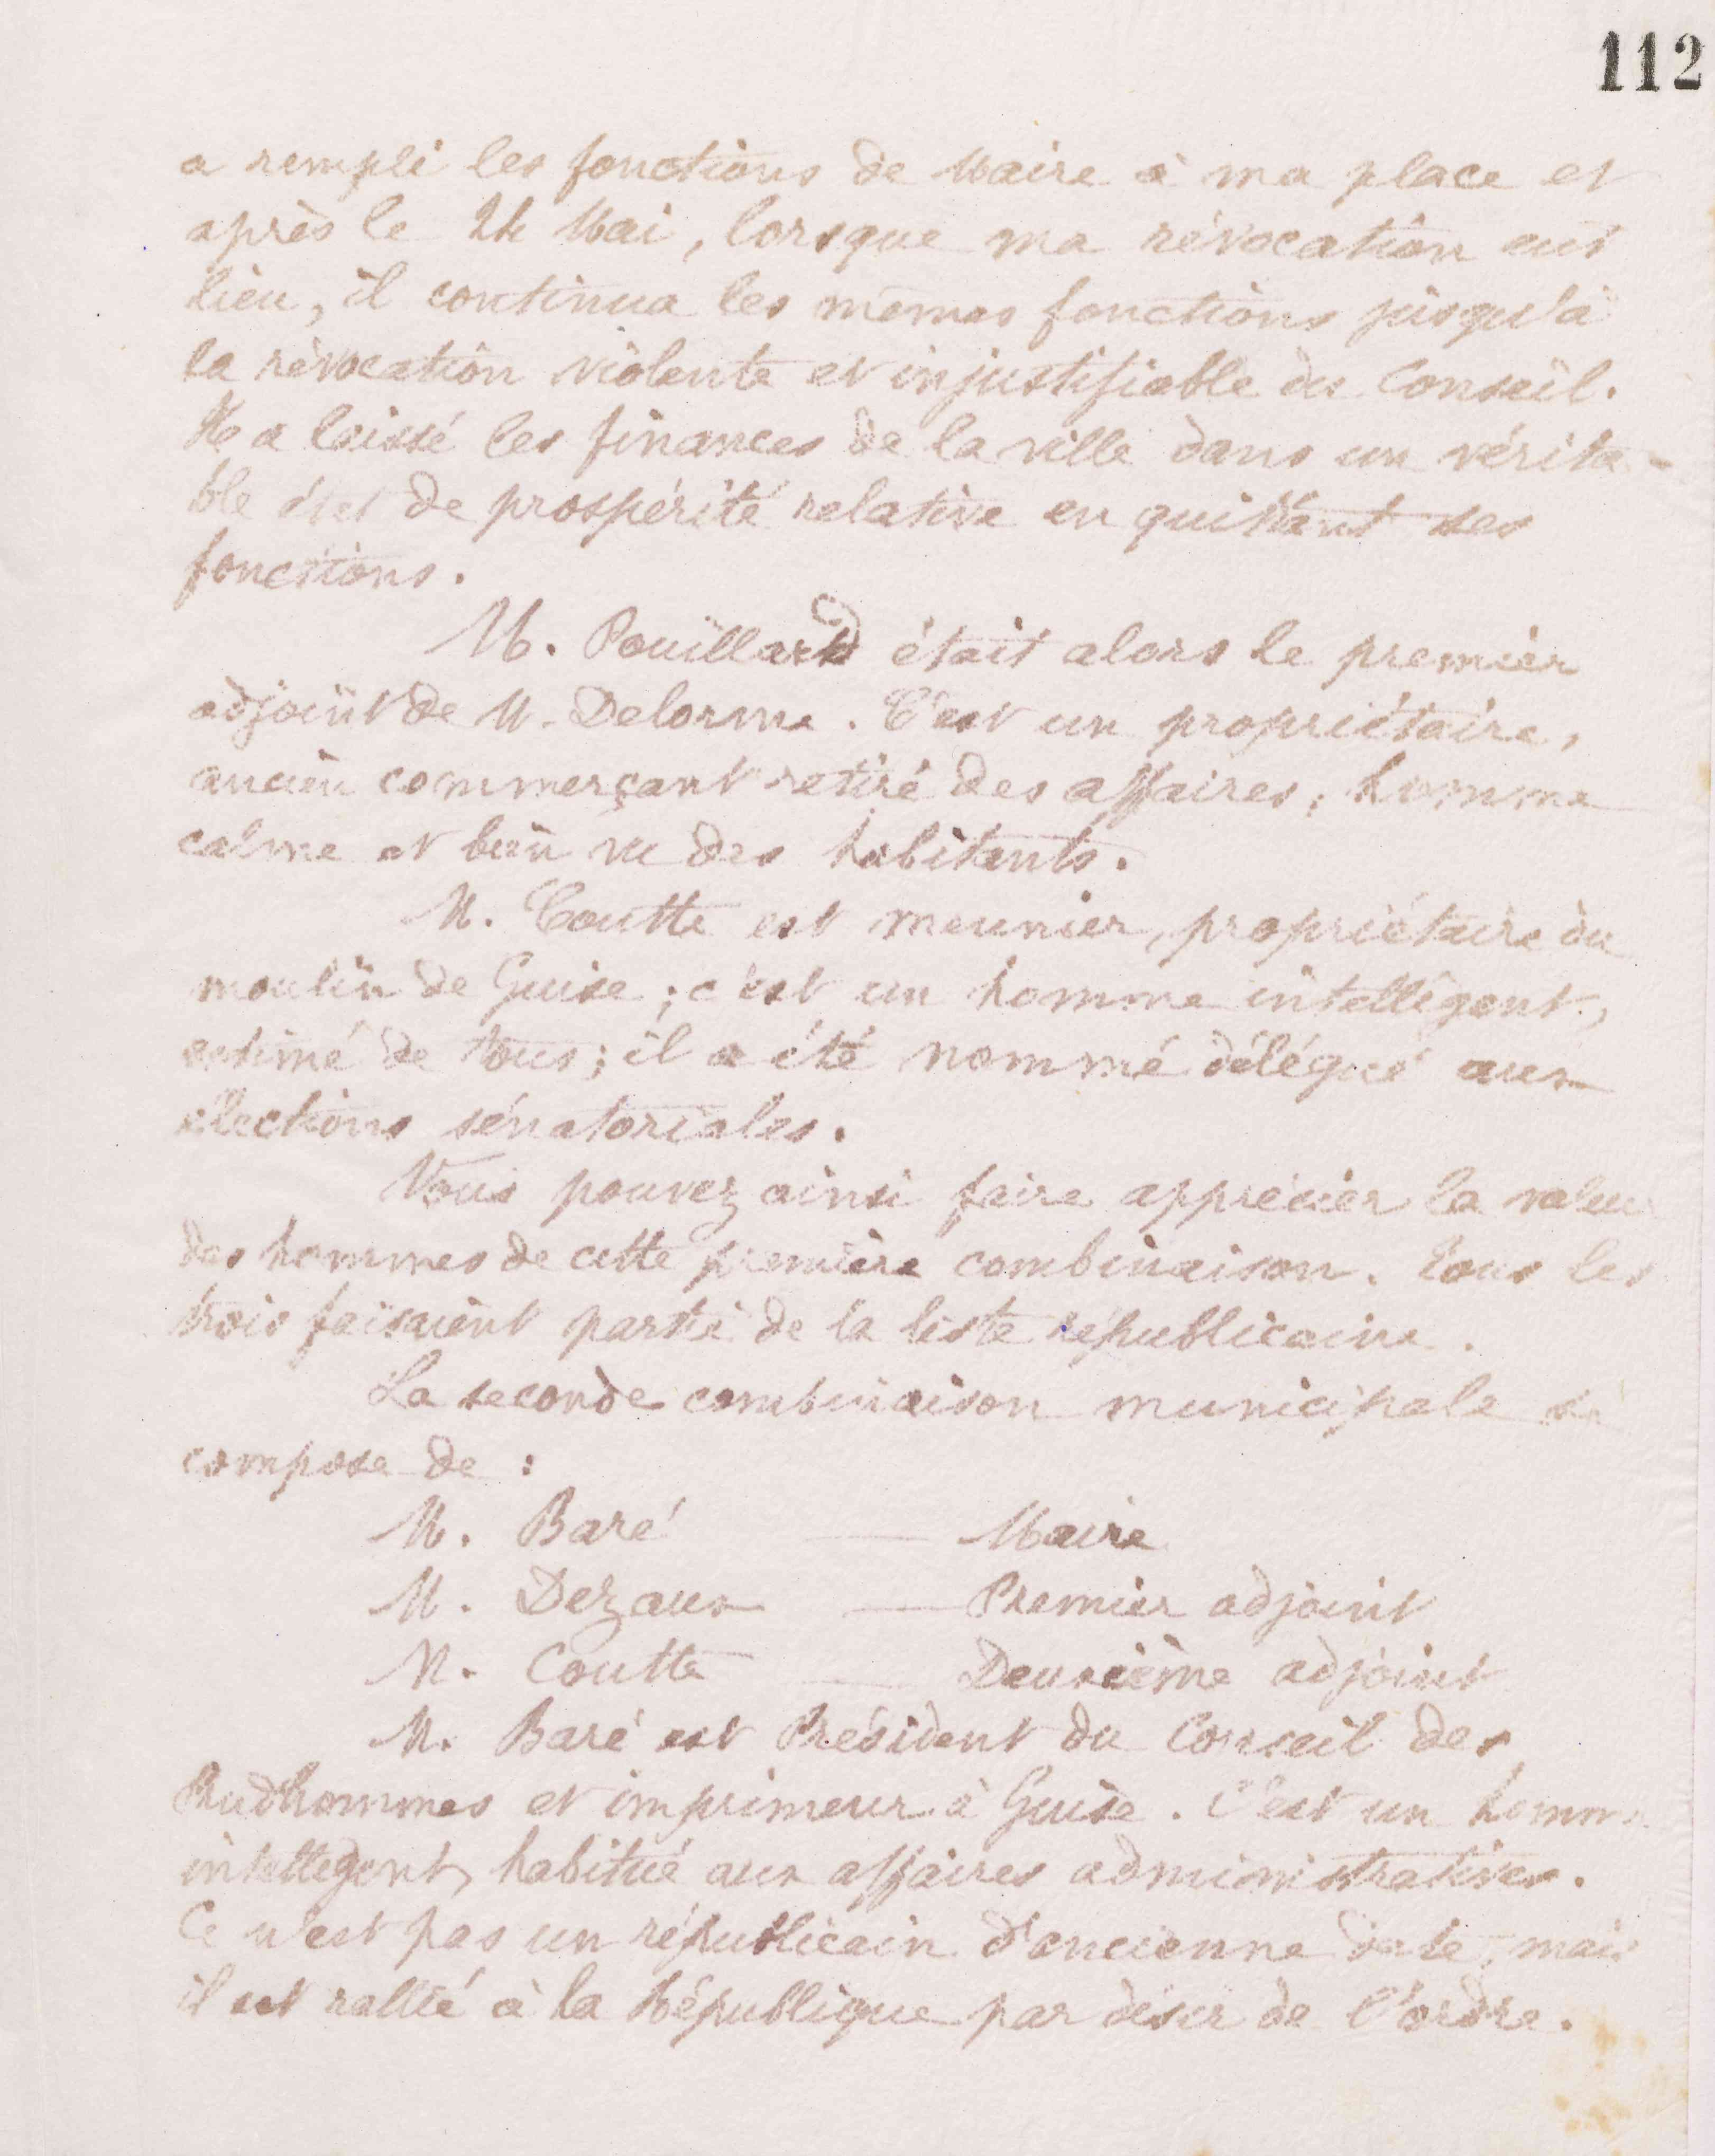 112
a rempli les fonctions de Maire à ma place et
après le 24 Mai, lorsque ma révocation eut
lieu, il continua les mêmes fonctions jusqu'à
la révocation violente et injustifiable du Conseil.
Il a laissé les finances de la ville dans un vérita-
ble état de prospérité relative en quittant ses
fonctions.
M. Pouillard était alors le premier
adjoint de M. Delorme. C'est un propriétaire,
ancien commerçant retiré des affaires, homme
calme et bien vu des habitants.
M. Coutte est meunier, propriétaire du
moulin de Guise ; c'est un homme intelligent,
estimé de tous ; il a été nommé délégué aux
élections sénatoriales.
Vous pouvez ainsi faire apprécier la valeur
des hommes de cette première combinaison. Tous les
trois faisaient partie de la liste républicaine.
La seconde combinaison municipale se
compose de :
M. Baré — Maire
M. Dezaux — Premier adjoint
M. Coutte — Deuxième adjoint
M. Baré est Président du Conseil des
Prudhommes et imprimeur à Guise. C'est un homme
intelligent, habitué aux affaires administratives.
Ce n'est pas un républicain d'ancienne date, mais
il est rallié à la République par désir de l'ordre.